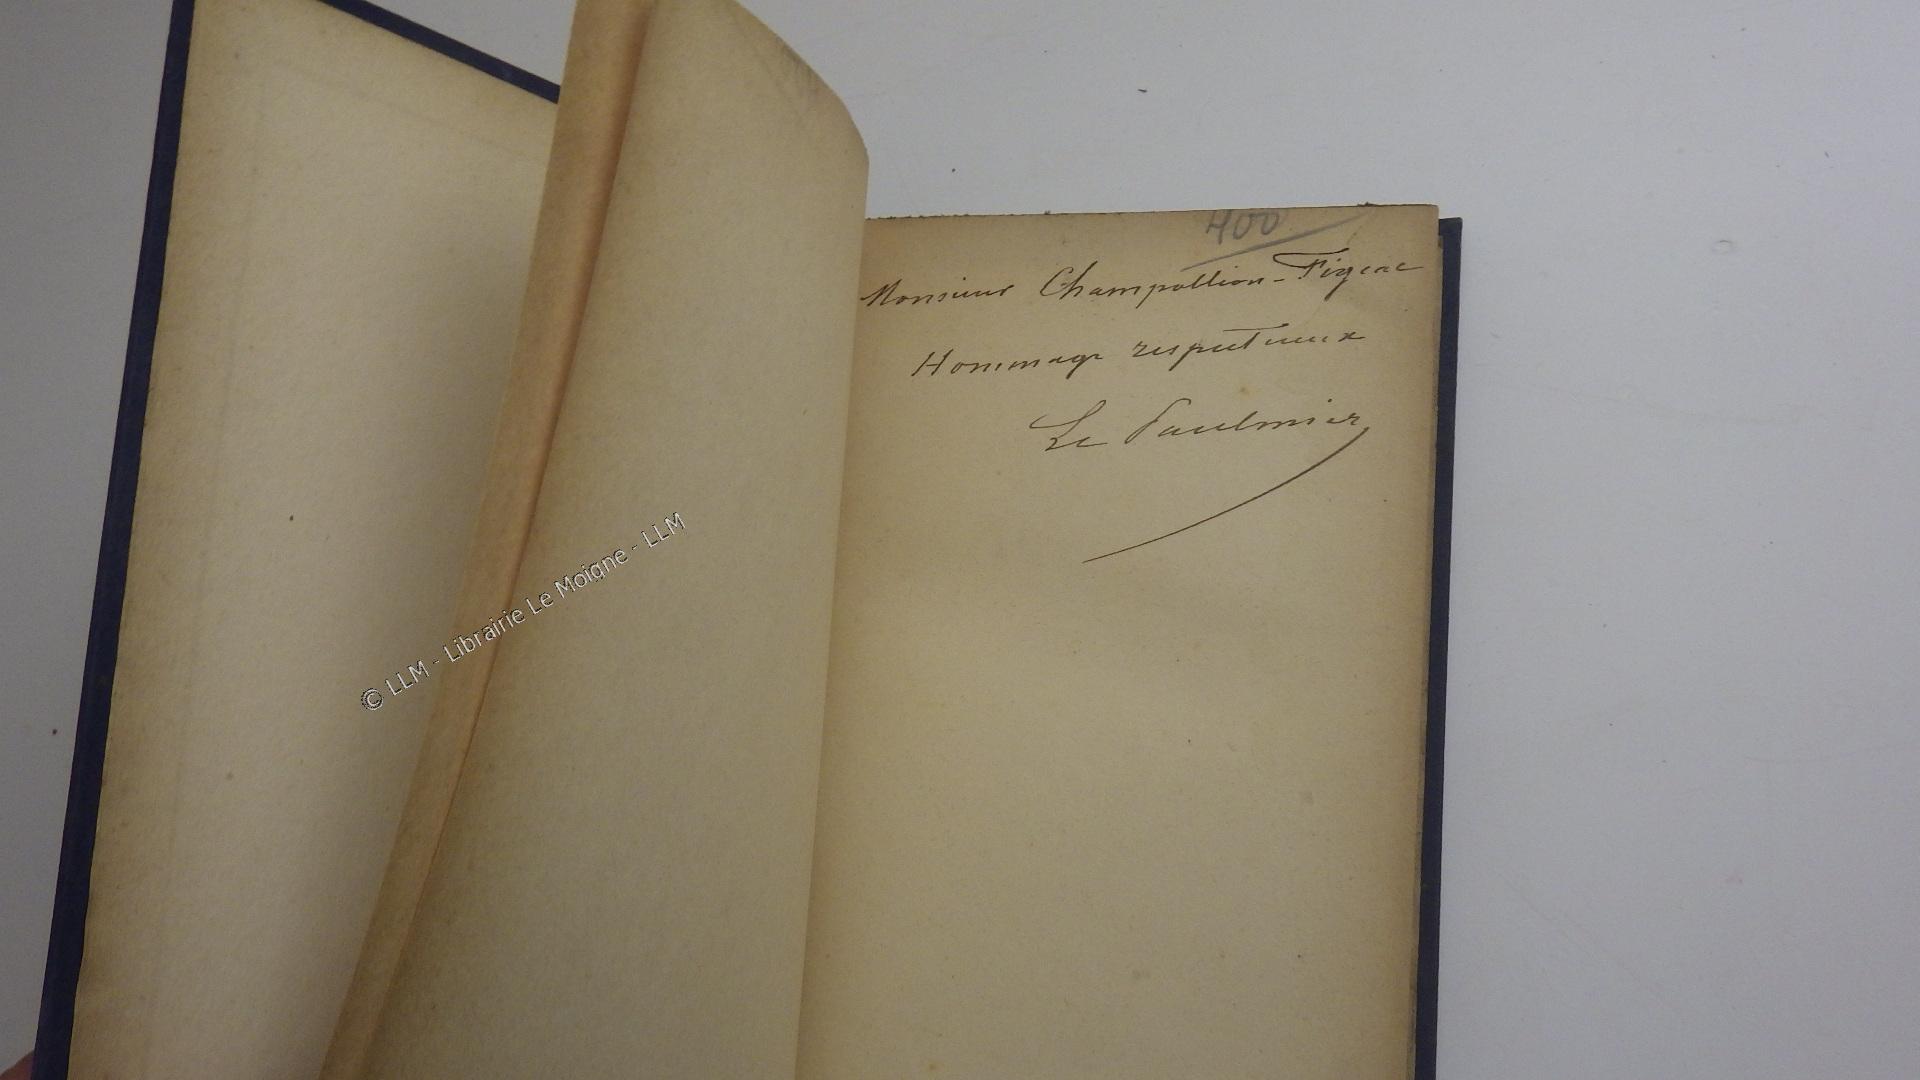 400
Monsieur Champollion-Figeac
Hommage respectueux
Le Paulmier
© LLM - Librairie Le Moigne - LLM